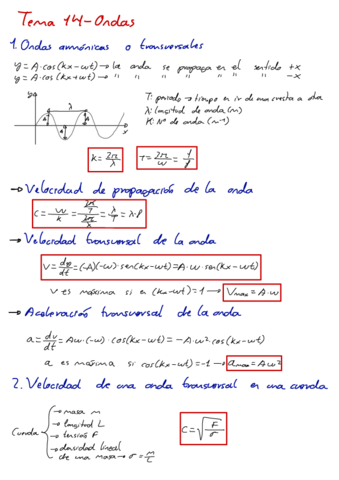 Tema 14-Ondas
1. Ondas armónicas o transversales
y = A·cos(kx-wt) → la onda se propaga en el sentido +x
y = A·cos(kx+wt) → " " " " " " " -x
y
λ
A
A
x
T: periodo → tiempo en ir de una cresta a otra
λ: longitud de onda (m)
K: Nº de onda (m⁻¹)
K = 2π/λ
T = 2π/w = 1/f
→ Velocidad de propagación de la onda
C = w/k = (2π/T)/(2π/λ) = λ/T = λ·f
→ Velocidad transversal de la onda
V = dy/dt = (-A)(-w)·sen(kx-wt) = A·w·sen(kx-wt)
V es máxima si en (kx-wt) = 1 → Vmax = A·w
→ Aceleración transversal de la onda
a = dv/dt = Aw·(-w)·cos(kx-wt) = -A·w²·cos(kx-wt)
a es máxima si cos(kx-wt) = -1 → amax = Aw²
2. Velocidad de una onda transversal en una cuerda
Cuerda
→ masa m
→ longitud L
→ tensión F
→ densidad lineal
de una masa → σ = m/L
C = √(F/σ)